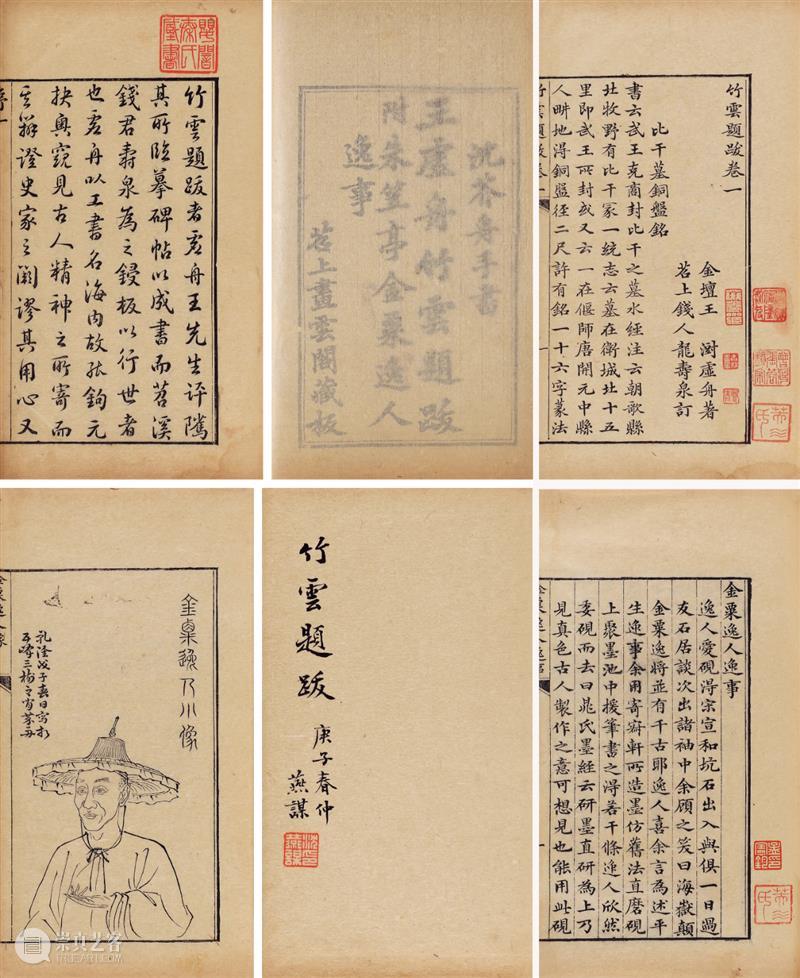 竹雲題跋者虛舟王先生評隲
其所臨摹碑帖以成書而苕溪
錢君壽泉為之鋟板以行世者
也虛舟以工書名海內故能鉤元
抉奧窺見古人精神之所寄而
其辨證史家之闕謬其用心又
沈芥舟手書
王虛舟竹雲題跋
附朱笠亭金粟逸人
逸事
苕上畫雲閣藏板
竹雲題跋卷一
金壇王 澍虛舟著
苕上錢人龍壽泉訂
比干墓銅盤銘
書云武王克商封比干之墓水經注云朝歌縣
北牧野有比干冢一統志云墓在衛城北十五
里即武王所封或又云一在偃師唐開元中縣
人畊地得銅盤徑二尺許有銘一十六字篆法
竹雲題跋卷一
金粟逸人小像
竹雲題跋
庚子春仲
燕謀
金粟逸人逸事
逸人愛硯得宋宣和坑石出入與俱一日過
友石居談次出諸袖中余顧之笑曰海嶽顛
金粟逸將並有千古耶逸人喜余言為述平
生逸事余用寄齋軒所造墨仿舊法直磨硯
上聚墨池中援筆書之得若干條逸人欣然
委硯而去曰晁氏墨經云研墨直研為上乃
見真色古人製作之意可想見也能用此硯
崇真艺客